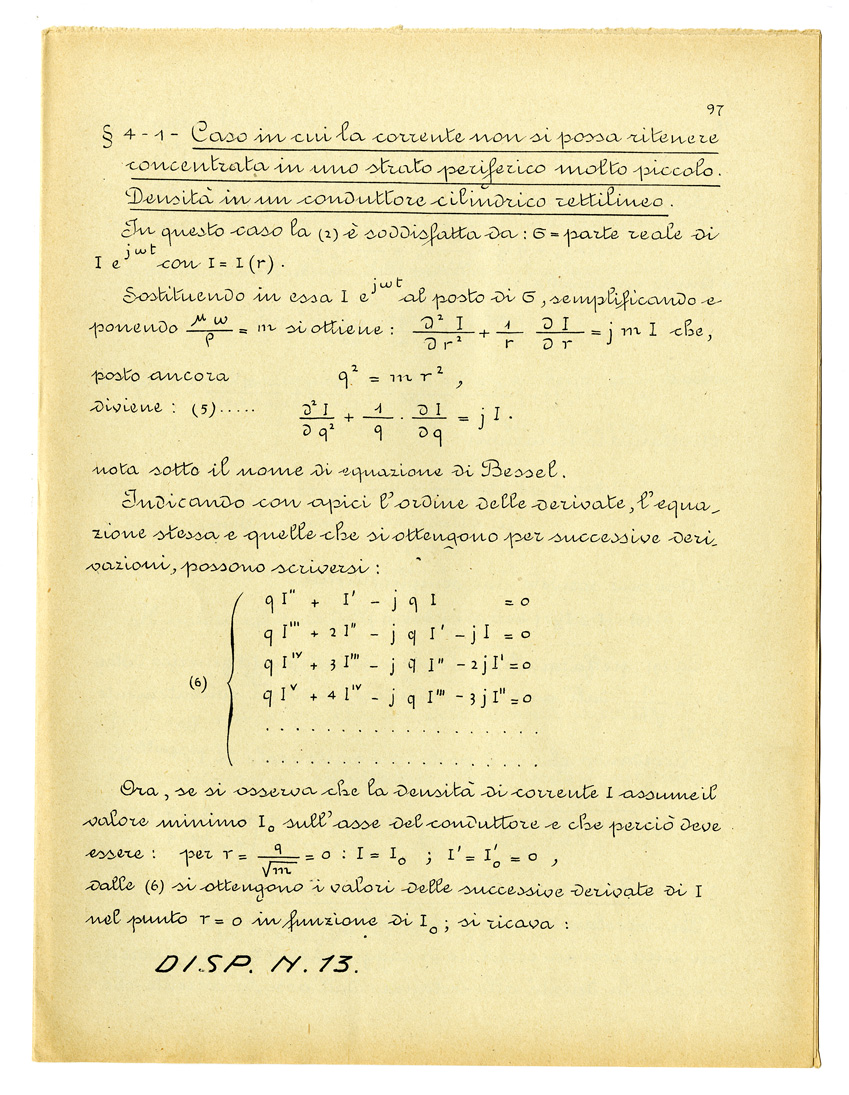 97
§ 4-1- Caso in cui la corrente non si possa ritenere
concentrata in uno strato periferico molto piccolo.
Densità in un conduttore cilindrico rettilineo.
In questo caso la (2) è soddisfatta da: σ = parte reale di
I e^{jωt} con I = I(r).
Sostituendo in essa I e^{jωt} al posto di σ, semplificando e
ponendo μω/ρ = m si ottiene: ∂²I/∂r² + 1/r ∂I/∂r = j m I che,
posto ancora q² = m r²,
diviene: (5)..... ∂²I/∂q² + 1/q · ∂I/∂q = j I.
nota sotto il nome di equazione di Bessel.
Indicando con apici l'ordine delle derivate, l'equa-
zione stessa e quelle che si ottengono per successive deri-
vazioni, possono scriversi:
q I'' + I' - j q I = 0
q I''' + 2 I'' - j q I' - j I = 0
(6) q I^{IV} + 3 I''' - j q I'' - 2 j I' = 0
q I^{V} + 4 I^{IV} - j q I''' - 3 j I'' = 0
. . . . . . . . . . . . . . . . . .
. . . . . . . . . . . . . . . . . .
Ora, se si osserva che la densità di corrente I assume il
valore minimo I₀ sull'asse del conduttore e che perciò deve
essere: per r = q/√m = 0 : I = I₀ ; I' = I'₀ = 0,
dalle (6) si ottengono i valori delle successive derivate di I
nel punto r = 0 in funzione di I₀; si ricava:
DISP. N. 13.